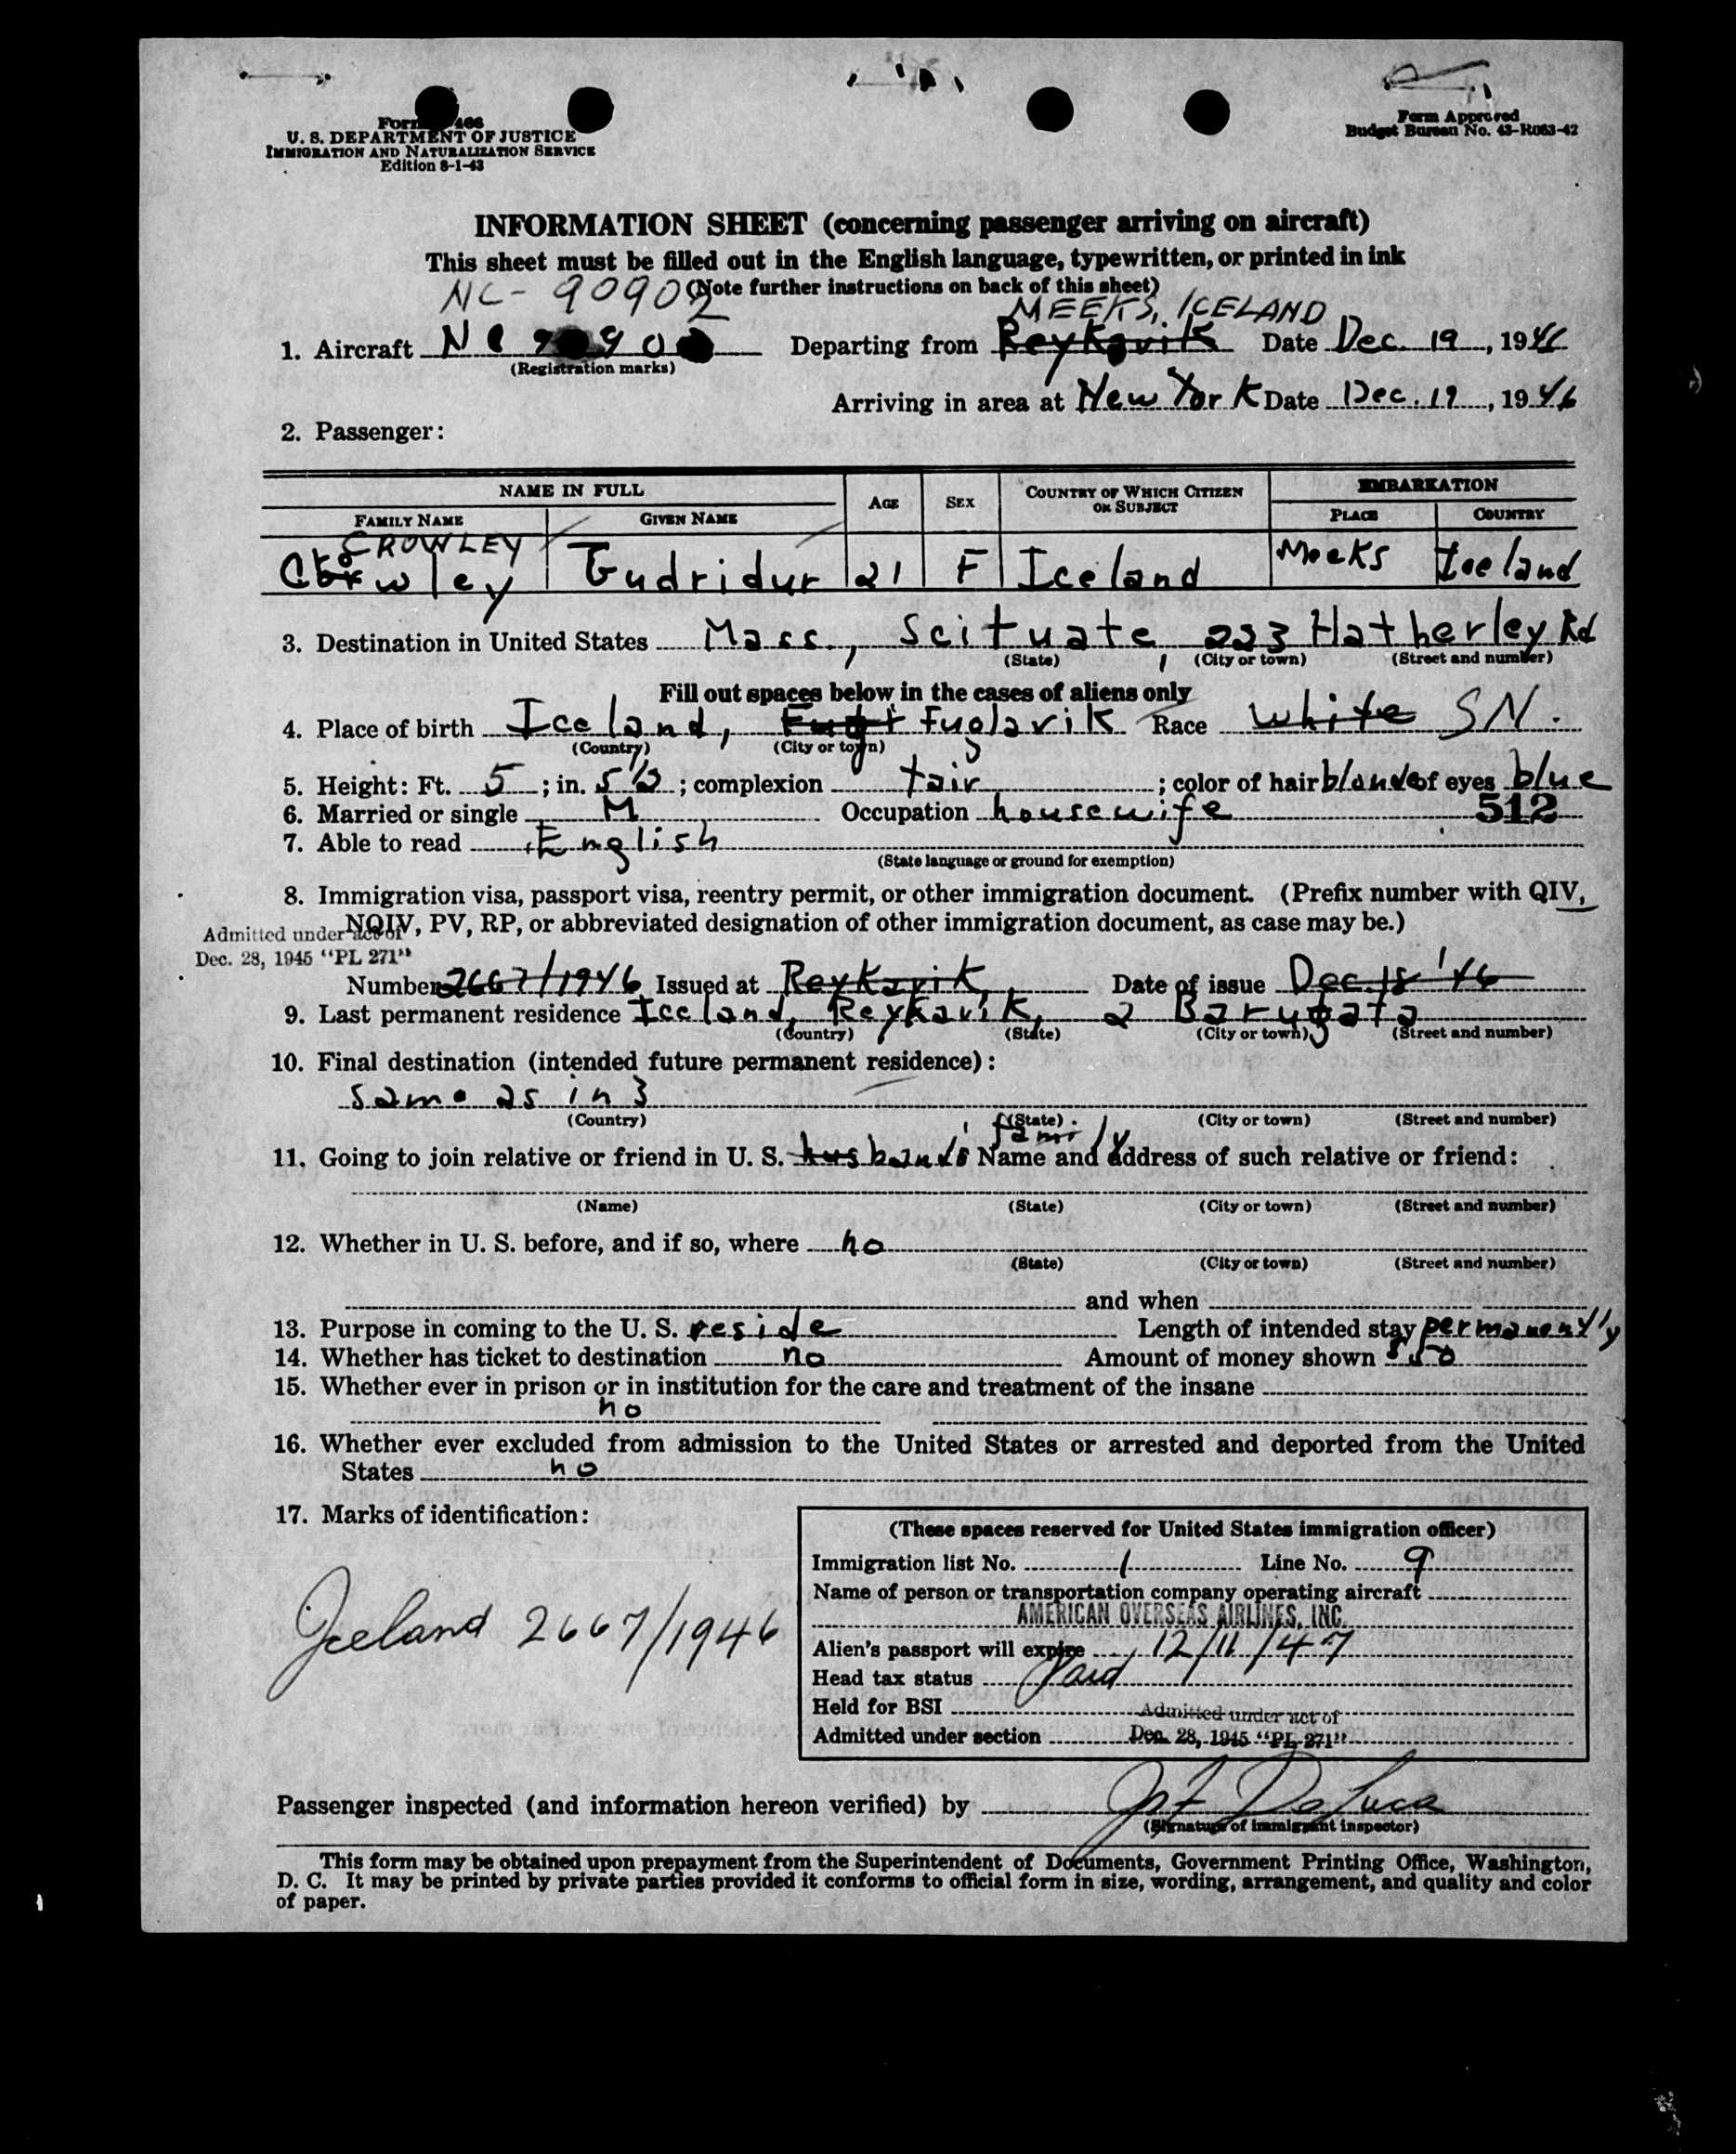 Form 466
U. S. DEPARTMENT OF JUSTICE
IMMIGRATION AND NATURALIZATION SERVICE
Edition 8-1-43
Form Approved
Budget Bureau No. 43-R063-42
INFORMATION SHEET (concerning passenger arriving on aircraft)
This sheet must be filled out in the English language, typewritten, or printed in ink
NC-90902 (Note further instructions on back of this sheet)
MEEKS, ICELAND
1. Aircraft NC 90 Departing from Reykavik Date Dec. 19, 1946
(Registration marks)
Arriving in area at New York Date Dec. 19, 1946
2. Passenger:
NAME IN FULL AGE SEX COUNTRY OF WHICH CITIZEN OR SUBJECT EMBARKATION
FAMILY NAME GIVEN NAME PLACE COUNTRY
CROWLEY
Crowley Gudridur 21 F Iceland Meeks Iceland
3. Destination in United States Mass., Scituate, 223 Hatherley Rd
(State) (City or town) (Street and number)
Fill out spaces below in the cases of aliens only
4. Place of birth Iceland, Fuglavik Race white SN.
(Country) (City or town)
5. Height: Ft. 5; in. 5 1/2; complexion fair; color of hair blonde of eyes blue
6. Married or single M Occupation housewife 512
7. Able to read English
(State language or ground for exemption)
8. Immigration visa, passport visa, reentry permit, or other immigration document. (Prefix number with QIV,
NQIV, PV, RP, or abbreviated designation of other immigration document, as case may be.)
Admitted under act of
Dec. 28, 1945 "PL 271"
Number 2667/1946 Issued at Reykjavik, Date of issue Dec 18 '46
9. Last permanent residence Iceland, Reykavik, 2 Barugata
(Country) (State) (City or town) (Street and number)
10. Final destination (intended future permanent residence):
same as in 3
(Country) (State) (City or town) (Street and number)
family
11. Going to join relative or friend in U. S. husband's Name and address of such relative or friend:
(Name) (State) (City or town) (Street and number)
12. Whether in U. S. before, and if so, where no
(State) (City or town) (Street and number)
and when
13. Purpose in coming to the U. S. reside Length of intended stay permanently
14. Whether has ticket to destination no Amount of money shown $50
15. Whether ever in prison or in institution for the care and treatment of the insane
no
16. Whether ever excluded from admission to the United States or arrested and deported from the United
States no
17. Marks of identification:
Iceland 2667/1946
(These spaces reserved for United States immigration officer)
Immigration list No. 1 Line No. 9
Name of person or transportation company operating aircraft
AMERICAN OVERSEAS AIRLINES, INC.
Alien's passport will expire 12/11/47
Head tax status Paid
Held for BSI
Admitted under act of
Admitted under section Dec. 28, 1945 "PL 271"
Passenger inspected (and information hereon verified) by DeLuca
(Signature of immigrant inspector)
This form may be obtained upon prepayment from the Superintendent of Documents, Government Printing Office, Washington,
D. C. It may be printed by private parties provided it conforms to official form in size, wording, arrangement, and quality and color
of paper.